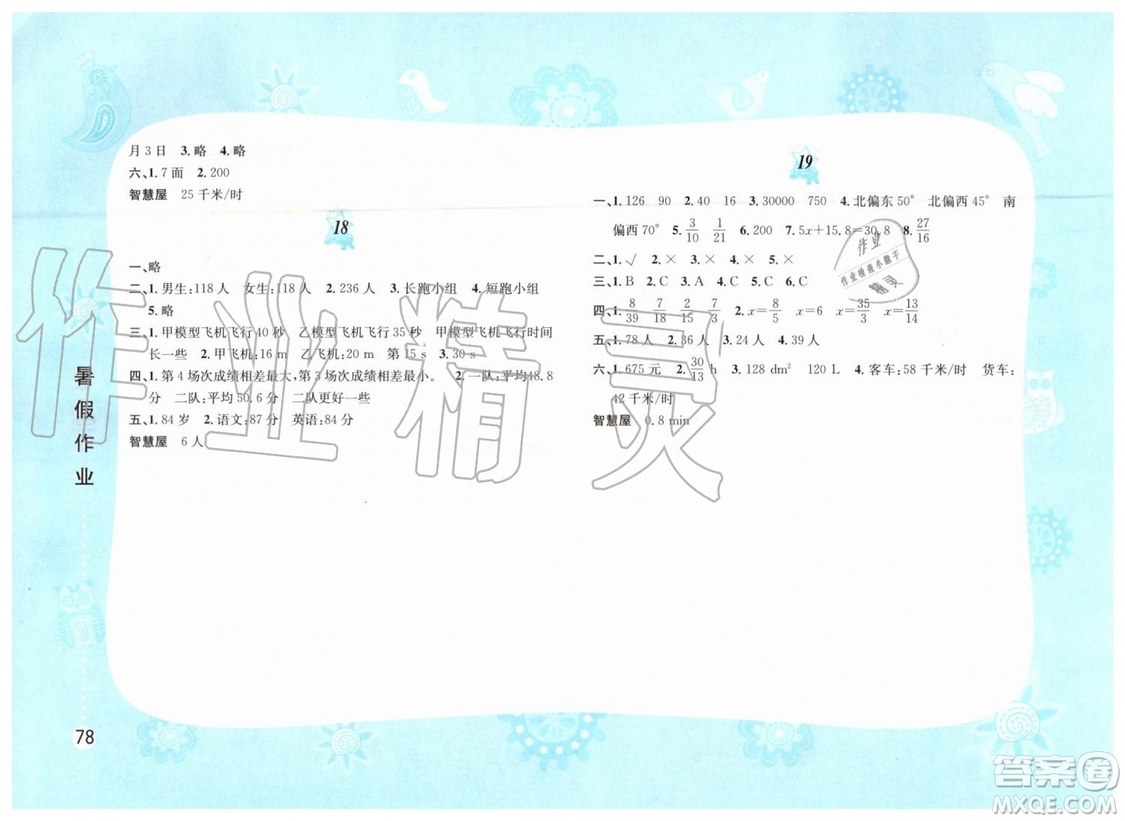 月3日 3.略 4.略
六、1.7面 2.200
智慧屋 25千米/时
18
一、略
二、1.男生:118人 女生:118人 2.236人 3.长跑小组 4.短跑小组
5.略
三、1.甲模型飞机飞行40秒 乙模型飞机飞行35秒 甲模型飞机飞行时间
长一些 2.甲飞机:16 m 乙飞机:20 m 第15 s 3.30 s
四、1.第4场次成绩相差最大,第3场次成绩相差最小。 2.一队:平均48.8
分 二队:平均50.6分 二队更好一些
五、1.84岁 2.语文:87分 英语:84分
智慧屋 6人
19
一、1.126 90 2.40 16 3.30000 750 4.北偏东50° 北偏西45° 南
偏西70° 5.3/10 1/21 6.200 7.5x+15.8=30.8 8.27/16
二、1.√ 2.× 3.× 4.× 5.×
三、1.B 2.C 3.A 4.C 5.C 6.C
四、1.8/39 7/18 2/15 7/3 2.x=8/5 x=6 x=35/3 x=13/14
五、1.78人 2.36人 3.24人 4.39人
六、1.675元 2.30/13 h 3.128 dm² 120 L 4.客车:58千米/时 货车:
42千米/时
智慧屋 0.8 min
暑假作业
78
作业精灵
作业
作业检查小助手
精灵
答案圈
MXQE.COM